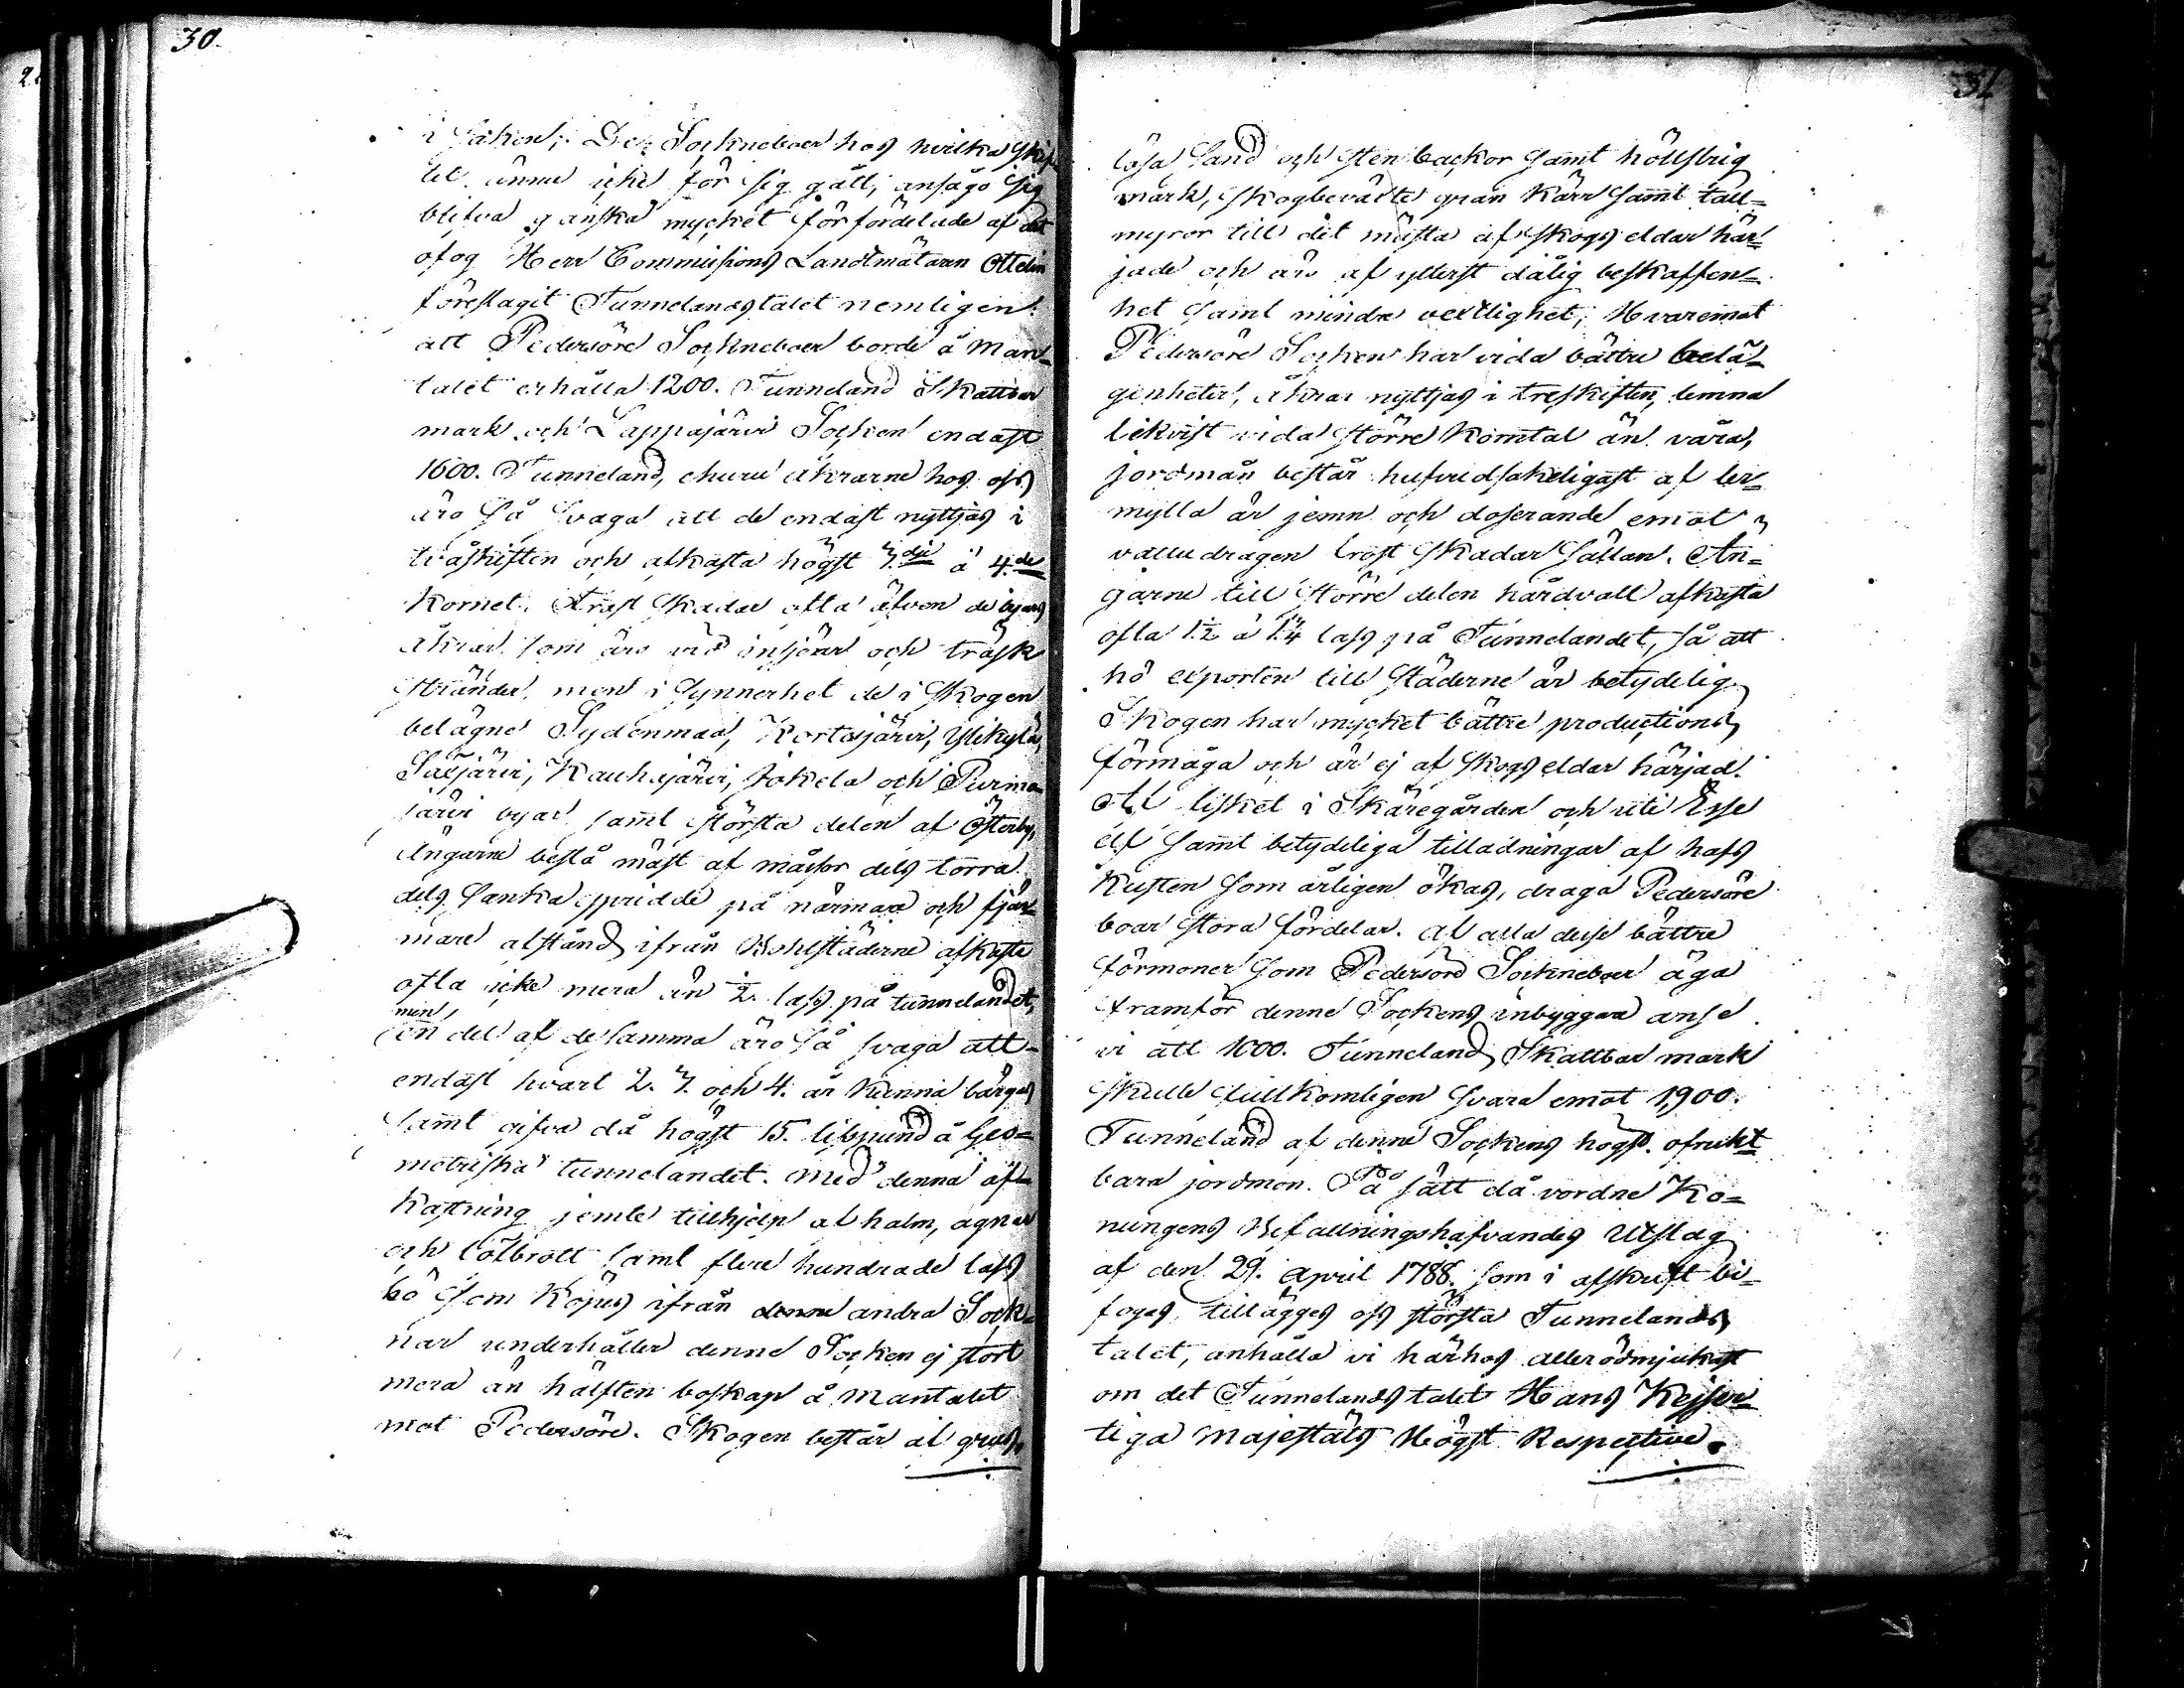 30.
i saken; De Sockneboer hos hvilka skif-
tet ännu icke för sig gått, ansågo sig
blifva ganska mycket förfördelade af det
ofog Herr Commissions Landtmätaren Ottelin
föreslagit Tunnelandstalet nemligen:
att Pedersöre Sockneboer borde å Man-
talet erhålla 1200. Tunneland Skattbar
mark och Lappajärvi Socken endast
1600. Tunneland, ehuru åkrarne hos oss
äro så svaga att de endast nyttjas i
tvåskiften och afkasta högst 3.dje à 4.de
Kornet. Frost skadar ofta äfven de byars
åkrar som äro vid insjöar och träsk
stränder, men i synnerhet de i Skogen
belägne Sydenmaa, Kortesjärvi, Ylikylä,
Saxjärvi, Kauhajärvi, Jokela och Purmo-
järvi byar samt största delen af Österby,
Ängarne bestå mäst af måssor dels torra
dels sanka spridde på närmare och fjär-
mare afstånd ifrån Bohlstäderne afkasta
ofta icke mera än ½ lass på tunnelandet,
men
en del af desamma äro så svaga att
endast hvart 2. 3. och 4. år kunna bärgas
samt gifva då högst 15. lispund å Geo-
metriska tunnelandet. Med denna af-
kastning jemte tillhjelp af halm, agnar
och löfbrott samt flere hundrade lass
hö som köpes ifrån denne andra Sock-
nar underhåller denne Socken ej stort
mera än hälften boskap å Mantalet
mot Pedersöre. Skogen består af grus,
31
lösa Sand och sten backor samt höllstrig
mark, skogbevärte gran kärr samt tall-
myror till det mästa af skogs eldar här-
jade och äro af ytterst dålig beskaffen-
het samt mindre vextlighet; Hvaremot
Pedersöre Socken har vida bättre belä-
genheter, åkrar nyttjas i treskiften, lemna
likvist vida större korntal än våra,
jordmån består hufvudsakeligast af ler-
mylla är jemn och doserande emot
vattudragen frost skadar sällan. Än-
garne till större delen hårdvall afkasta
ofta 1½ à 1¾ lass på Tunnelandet, så att
hö exporten till städerne är betydelig
Skogen har mycket bättre productions
förmåga och är ej af skogs eldar härjad.
Af fisket i Skäregården och uti Esse
elf samt betydeliga tillandningar af hafs
kusten som årligen ökas, draga Pedersöre
boar stora fördelar. Af alla desse bättre
förmoner som Pedersöre Sockneboer äga
framför denne Sockens inbyggare anse
vi att 1000. Tunneland Skattbar mark
skulle fullkomligen svara emot 1,900.
Tunneland af denne Sockens högst ofrukt-
bara jordmon. På sätt då vordne Ko-
nungens Befallningshafvandes Utslag
af den 29. April 1788. som i afskrift bi-
foges, tillägges oss största Tunnelands
talet, anhålla vi härhos allerödmjukast
om det Tunnelands talet Hans Kejser-
liga Majestäts Högst Respective